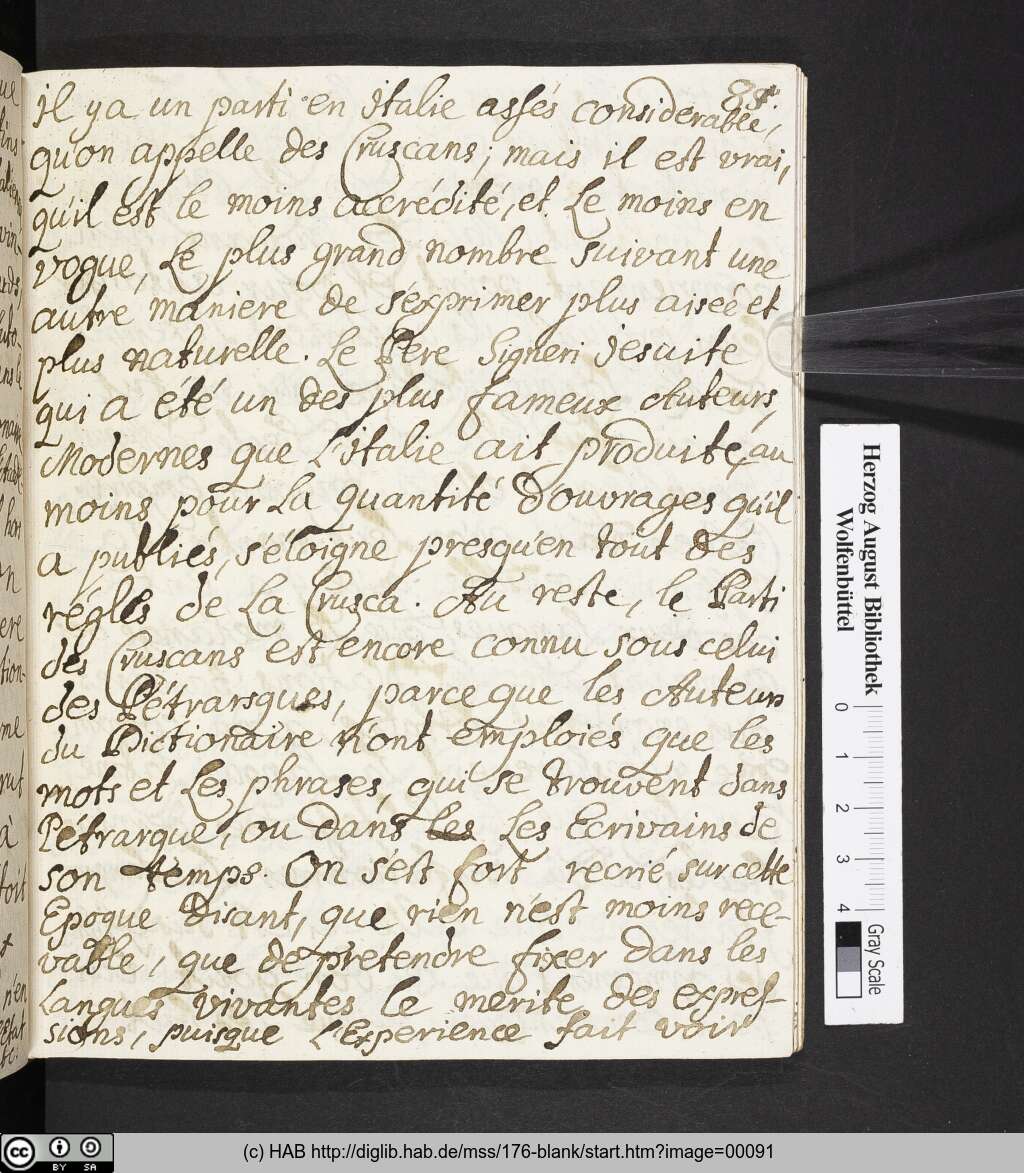 88.
il y a un parti en Italie assés considerable,
qu'on appelle des Cruscans; mais il est vrai,
qu'il est le moins accrédité, et le moins en
vogue, Le plus grand nombre suivant une
autre maniere de s'exprimer plus aiseé et
plus naturelle. Le Pere Signeri Jesuite
qui a été un des plus fameux Auteurs,
Modernes que L'Italie ait produite, au
moins pour La quantité d'ouvrages qu'il
a publiés, s'éloigne presqu'en tout des
régles de La Crusca. Au reste, le Parti
des Cruscans est encore connu sous celui
des Pétrarsques, parce que les Auteurs
du Dictionaire n'ont emploiés que les
mots et Les phrases, qui se trouvent dans
Pétrarque, ou dans les Les Ecrivains de
son temps. On s'est fort recrié sur cette
Epoque disant, que rien n'est moins rece-
vable, que de pretendre fixer dans les
Langues vivantes le merite des expres-
sions, puisque L'Experience fait voir
Herzog August Bibliothek
Wolfenbüttel
0 1 2 3 4
Gray Scale
cc BY SA
(c) HAB http://diglib.hab.de/mss/176-blank/start.htm?image=00091